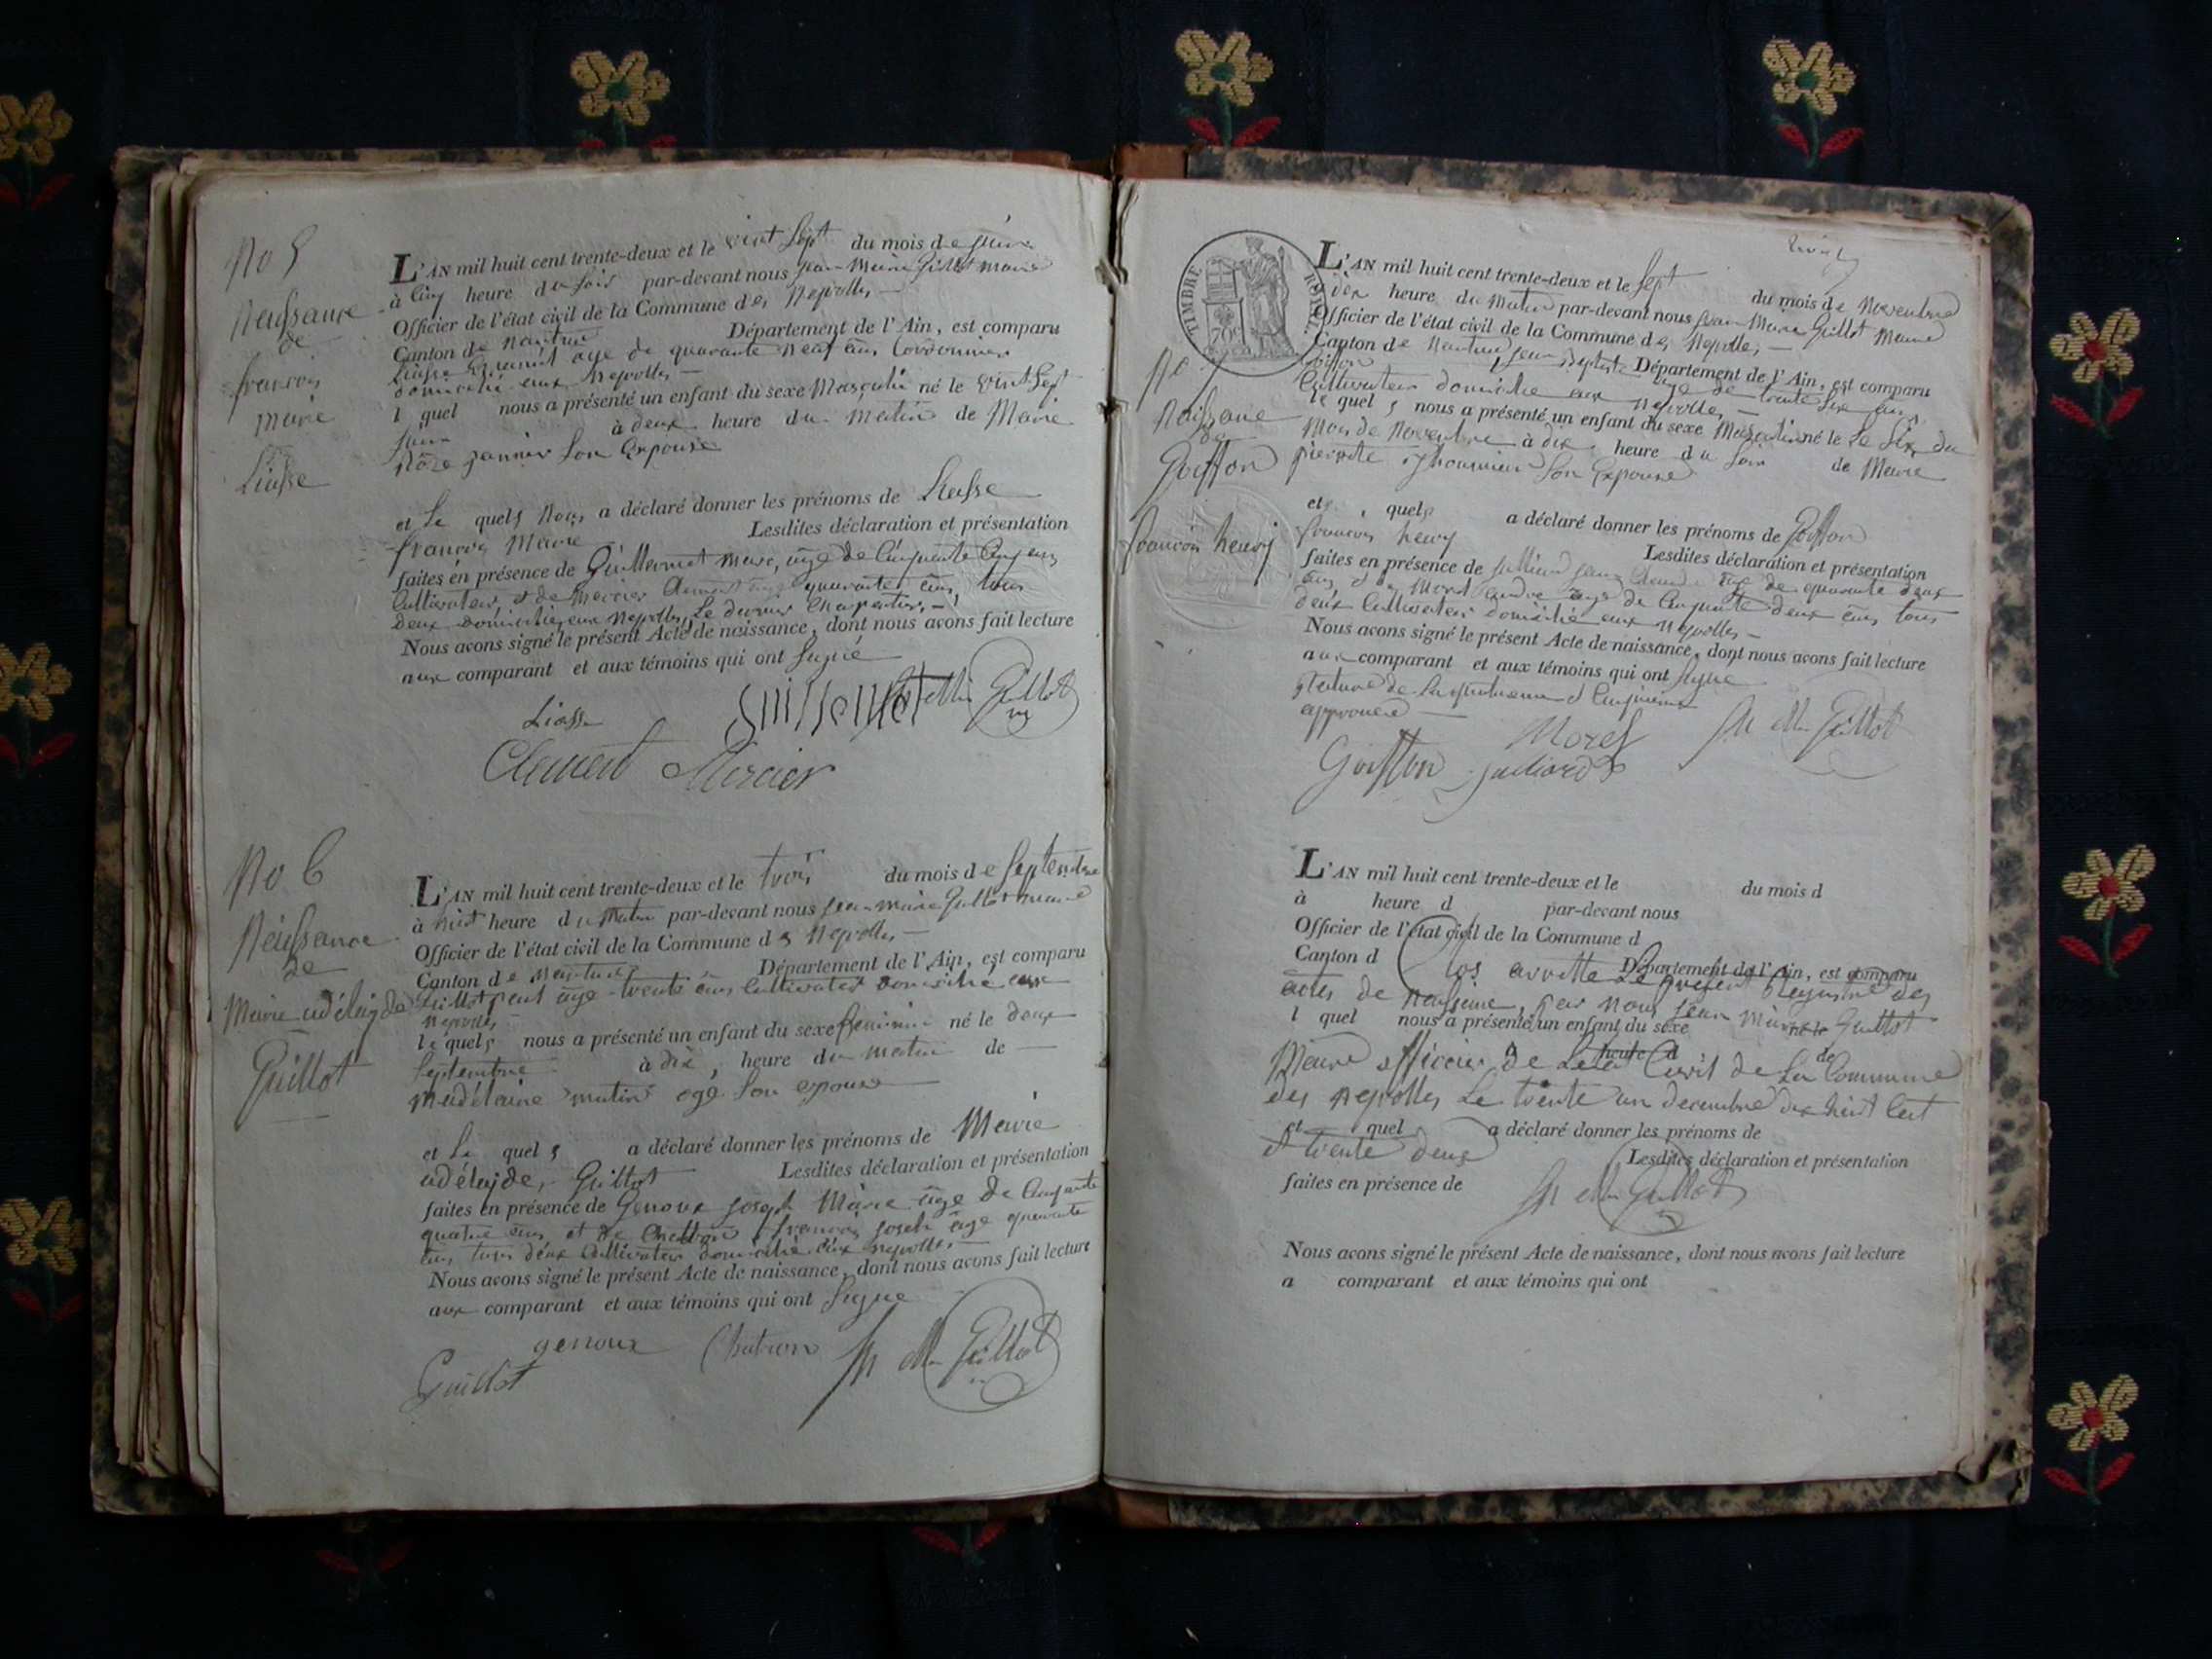 No 5
Naissance
de
françois
marie
Liasse
L'AN mil huit cent trente-deux et le vint sept du mois de juin
à cinq heure du soir par-devant nous jean marie Guillot maire
Officier de l'état civil de la Commune des Neyrolles
Canton de Nantua Département de l'Ain, est comparu
Liasse agé de quarante neuf ans Cordonnier
domicilié aux Neyrolles
l quel nous a présenté un enfant du sexe Masculin né le vint sept
juin à deux heure du matin de Marie
Rôze jannier son Expouse
et Le quels Nous a déclaré donner les prénoms de Liasse
françois Marie Lesdites déclaration et présentation
faites en présence de Guillermet marc, age de Cinquante Cinq ans
Cultivateur et de Mercier Clement age quarante ans, tous
deux domicilié aux Neyrolles Le dernier Charpentier
Nous avons signé le présent Acte de naissance, dont nous avons fait lecture
aux comparant et aux témoins qui ont signé
Liasse Guillermet Jn Mie Guillot
Clement Mercier
No 6
Naissance
de
Marie adélayde
Guillot
L'AN mil huit cent trente-deux et le trois du mois de Septembre
à huit heure du Matin par-devant nous jean marie Guillot maire
Officier de l'état civil de la Commune des Neyrolles
Canton de Nantua Département de l'Ain, est comparu
Guillot age trente ans Cultivateur domicilié aux
Neyrolles
le quels nous a présenté un enfant du sexe feminin né le deux
Septembre à dix heure du matin de
Madélaine mutin age son epouse
et Le quels a déclaré donner les prénoms de Marie
adélayde, Guillot Lesdites déclaration et présentation
faites en présence de Genoux joseph Marie age de Cinquante
quatre ans et de Chatron françois joseph age quarante
ans tous deux Cultivateur domicilié aux Neyrolles
Nous avons signé le présent Acte de naissance, dont nous avons fait lecture
aux comparant et aux témoins qui ont signe
genoux Chatron Jn Mie Guillot
Guillot
TIMBRE ROYAL.
70c
No 7
Naissance
de
Goiffon
francois henry
L'AN mil huit cent trente-deux et le sept du mois de Novembre
dix heure du Matin par-devant nous jean Marie Guillot Maire
Officier de l'état civil de la Commune des Neyrolles
Canton de Nantua Département de l'Ain, est comparu
Goiffon jean age de trente six ans
Cultivateur domicilié aux Neyrolles
le quel s nous a présenté un enfant du sexe Masculin né le Le six du
Mois de Novembre à dix heure du soir de Marie
pierrette son Expouse
et quels a déclaré donner les prénoms de Goiffon
francois henry Lesdites déclaration et présentation
faites en présence de julliard jean Claude age de quarante deux
ans et de Morel andre age de Cinquante deux ans tous
deux Cultivateur domicilié aux Neyrolles
Nous avons signé le présent Acte de naissance, dont nous avons fait lecture
aux comparant et aux témoins qui ont signe
approuvé
Morel Jn Mie Guillot
Goiffon julliard
L'AN mil huit cent trente-deux et le du mois d
à heure d par-devant nous
Officier de l'état civil de la Commune d
Canton d Département de l'Ain, est comparu
Clos arretté Le present Registre des
actes de Naissance, par nous jean Marie Guillot
l quel nous a présenté un enfant du sexe né le
à heure d de
Maire officier de Letat Civil de La Commune
des Neyrolles Le trente un decembre dix huit Cent
et quel a déclaré donner les prénoms de
et trente deux
Lesdites déclaration et présentation
faites en présence de
Jn Mie Guillot
Nous avons signé le présent Acte de naissance, dont nous avons fait lecture
a comparant et aux témoins qui ont